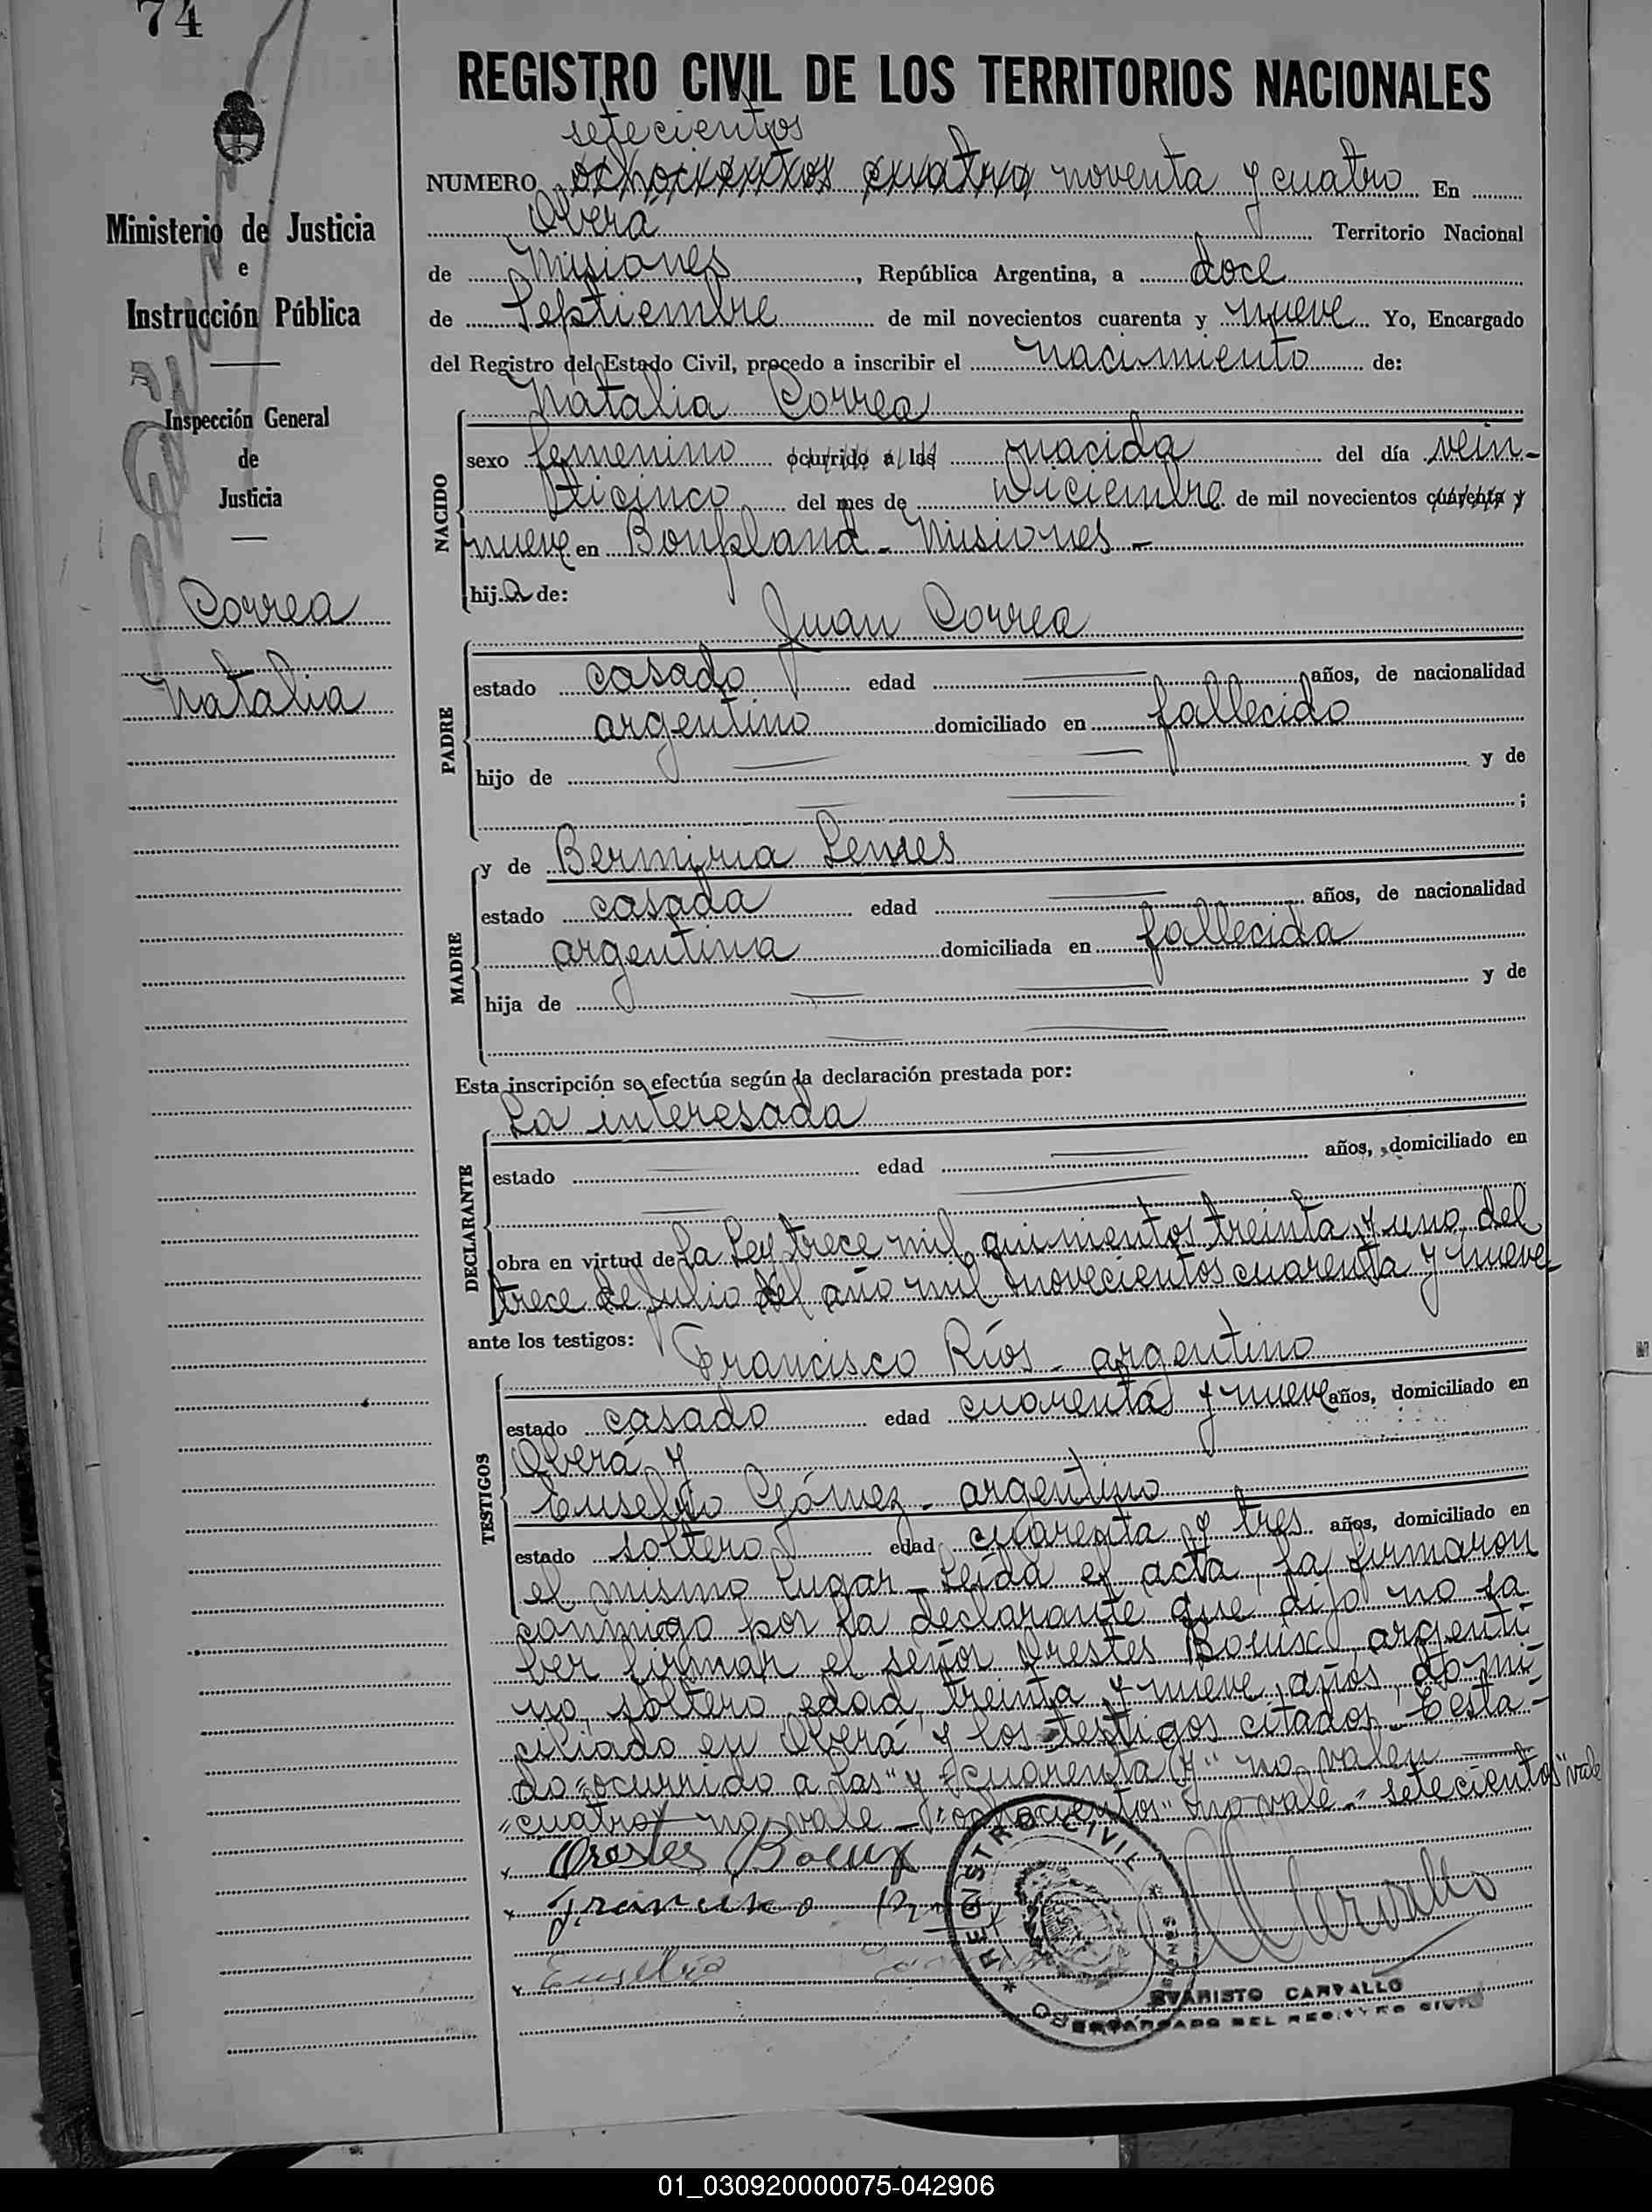 74
REGISTRO CIVIL DE LOS TERRITORIOS NACIONALES
setecientos
NUMERO ochocientos cuatro noventa y cuatro En
Oberá Territorio Nacional
de Misiones, República Argentina, a doce
de Septiembre de mil novecientos cuarenta y nueve Yo, Encargado
del Registro del Estado Civil, procedo a inscribir el nacimiento de:
Natalia Correa
Ministerio de Justicia
e
Instrucción Pública
Inspección General
de
Justicia
Correa
Natalia
NACIDO
sexo femenino ocurrido a las nacida del día vein-
ticinco del mes de Diciembre de mil novecientos cuarenta y
nueve en Bonpland - Misiones -
hija de:
PADRE
Juan Correa
estado casado edad años, de nacionalidad
argentino domiciliado en fallecido
hijo de y de
;
MADRE
y de Bermiria Lemes
estado casada edad años, de nacionalidad
argentina domiciliada en fallecida
hija de y de
Esta inscripción se efectúa según la declaración prestada por:
DECLARANTE
La interesada
estado edad años, domiciliado en
obra en virtud de La Ley trece mil quinientos treinta y uno del
trece de Julio del año mil novecientos cuarenta y nueve
ante los testigos:
TESTIGOS
Francisco Ríos - argentino
estado casado edad cuarenta y nueve años, domiciliado en
Oberá y
Eusebio Gómez - argentino
estado soltero edad cuarenta y tres años, domiciliado en
el mismo lugar - Leída el acta, la firmaron
conmigo por la declarante que dijo no sa
ber firmar el señor Orestes Bouix, argenti
no, soltero edad, treinta y nueve años, domi-
ciliado en Oberá y los testigos citados - Testa-
do "ocurrido a las" y "cuarenta y" no valen
"cuatro" no vale - "ochocientos" no vale - "setecientos" vale
Orestes Bouix
Francisco
Eusebio
REGISTRO CIVIL
EVARISTO CARVALLO
ENCARGADO DEL REGISTRO CIVIL
01_030920000075-042906